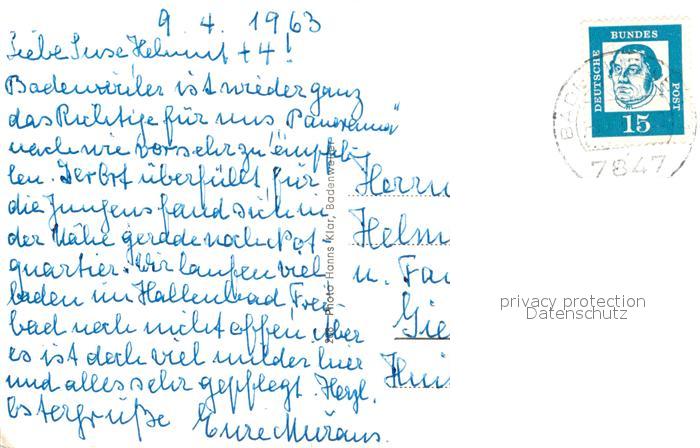 9. 4. 1963
Liebe Suse Helmut + 4!
Badenweiler ist wieder ganz
das Richtige für uns "Panorama"
nach wie vor sehr zu empfeh-
len. Ist überfüllt, für
die Jungens fand sich in
der Nähe gerade noch Not-
quartier. Wir laufen viel
baden im Hallenbad Frei-
bad noch nicht offen aber
es ist doch viel milder hier
und alles sehr gepflegt. Herzl.
Ostergrüße Eure
Herrn
Helm
u. Fa
Gie
Photo Hanns Klar, Badenweiler
DEUTSCHE BUNDES POST
15
BAD
7847
privacy protection
Datenschutz